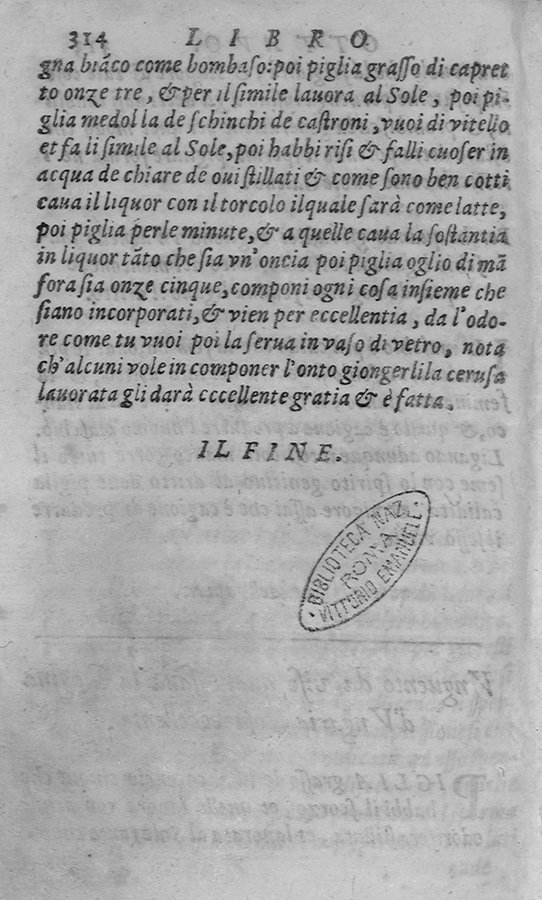 314 LIBRO
gna biāco come bombaſo: poi piglia graſſo di capret
to onze tre, & per il ſimile lauora al Sole, poi pi-
glia medolla de ſchinchi de caſtroni, vuoi di vitello
et fa li ſimile al Sole, poi habbi riſi & falli cuoſer in
acqua de chiare de oui ſtillati & come ſono ben cotti
caua il liquor con il torcolo ilquale ſarà come latte,
poi piglia perle minute, & a quelle caua la ſoſtantia
in liquor tāto che ſia vn'oncia poi piglia oglio di mā
fora ſia onze cinque, componi ogni coſa inſieme che
ſiano incorporati, & vien per eccellentia, da l'odo-
re come tu vuoi poi la ſerua in vaſo di vetro, nota
ch'alcuni vole in componer l'onto giongerli la ceruſa
lauorata gli darà cccellente gratia & è fatta.
IL FINE.
BIBLIOTECA NAZ.
ROMA
VITTORIO EMANUELE